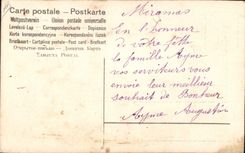 Carte postale - Postkarte
Weltpostverein - Union postale universelle
Levelező-Lap - Correspondenzkarte - Dopisnice
Karta korespondencyjna - Korespondenční lístek
Brefkort - Cartolina postale - Post card - Briefkaart
Открытое письмо - Дописна Карта
Tarjeta Postal
Miramas
En l'honneur
de votre fette
la famille Ayme
vos serviteurs vous
envoi leur meilleur
souhait de Bonheur
Ayme Augustin